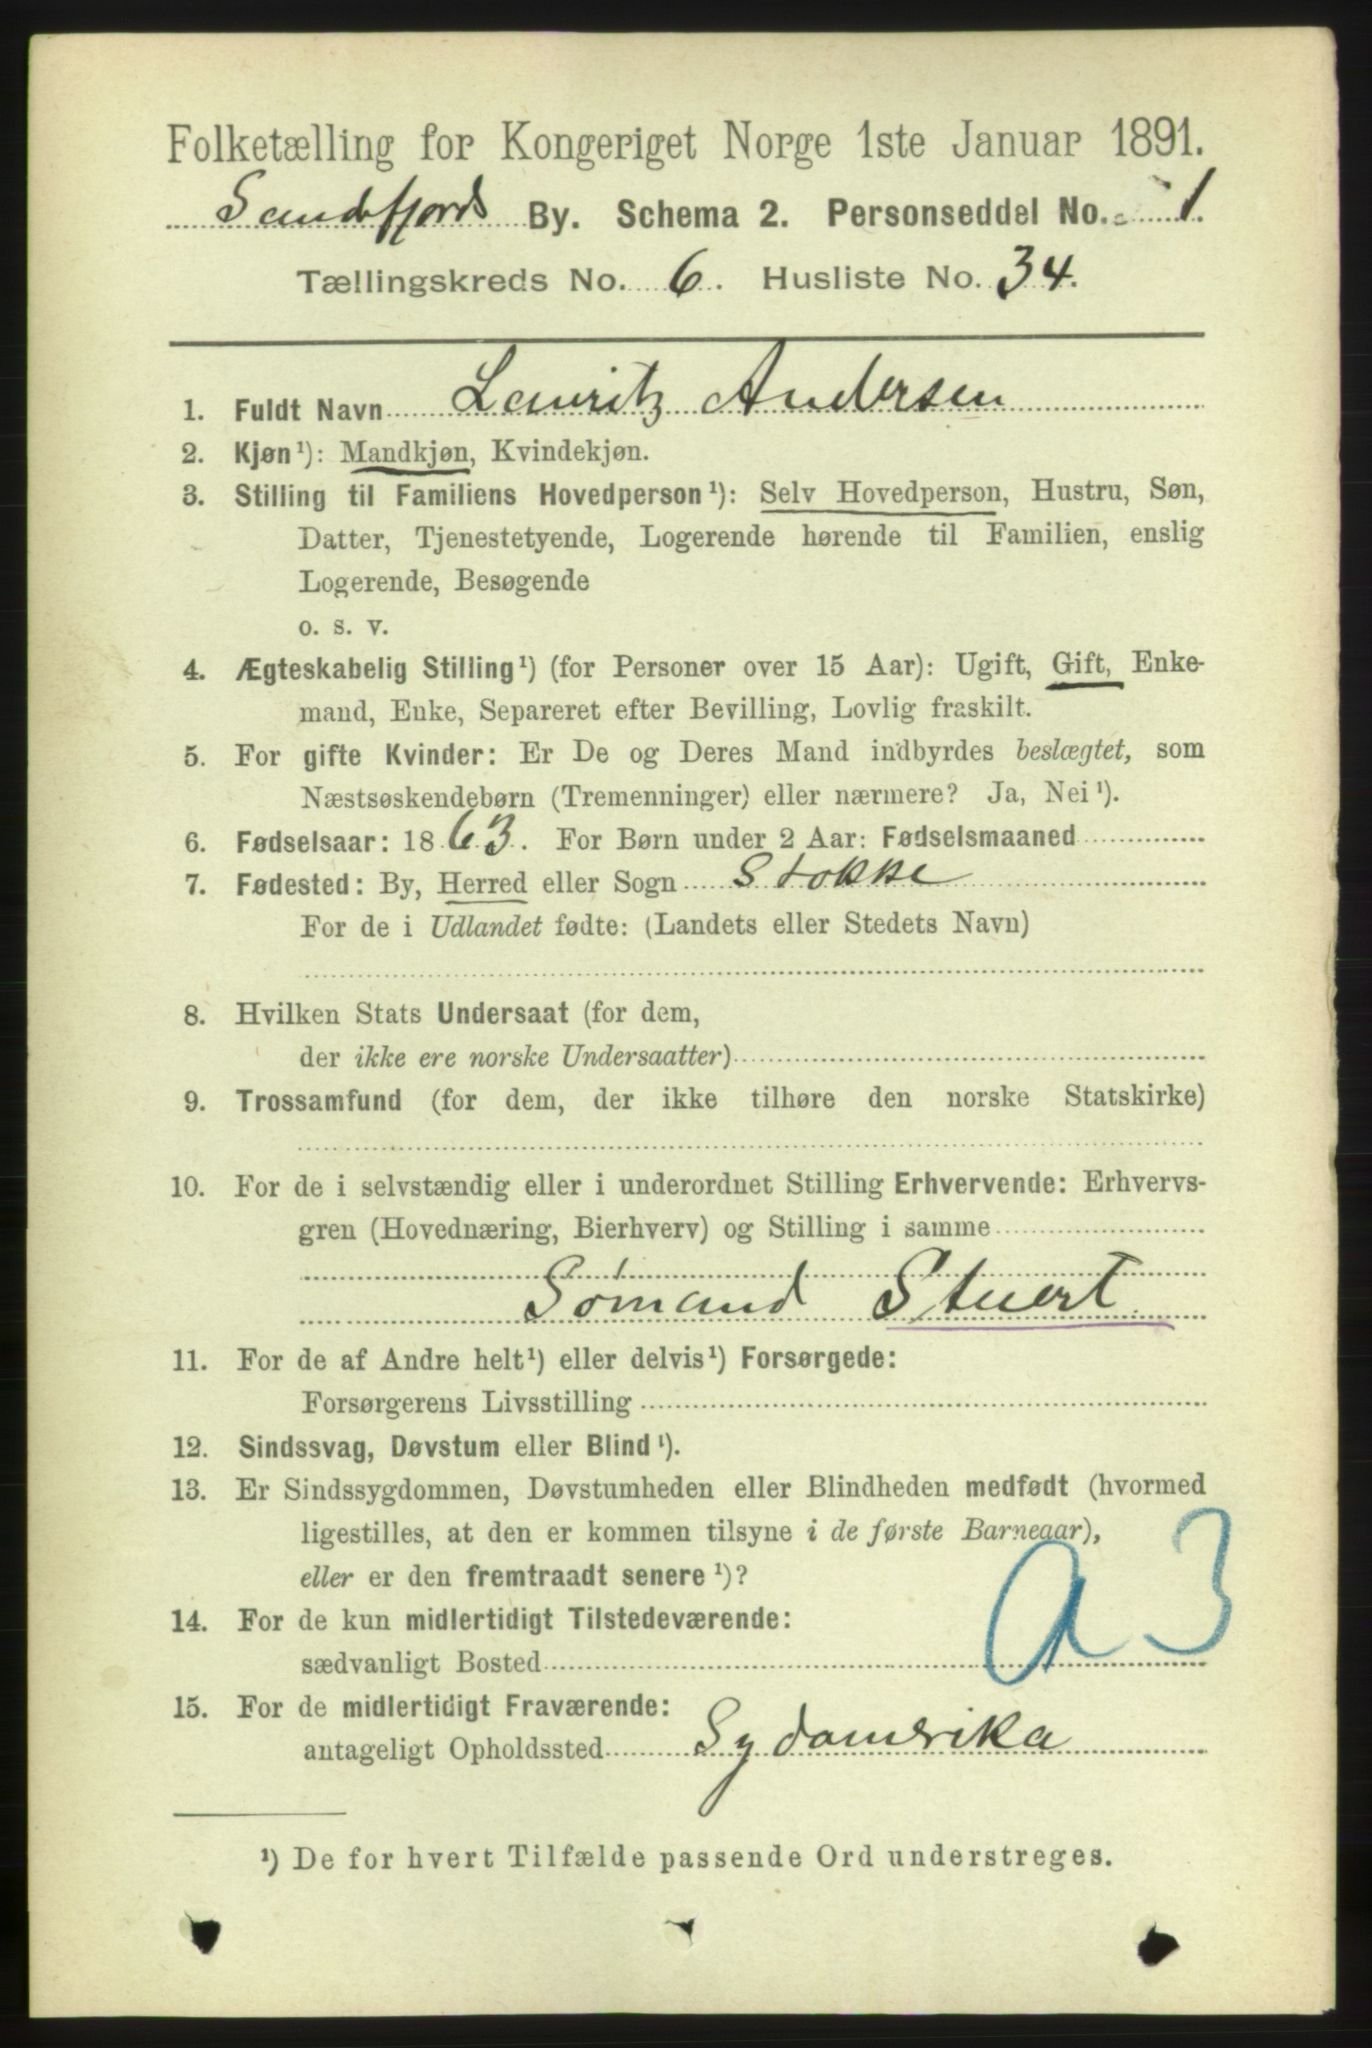 Folketælling for Kongeriget Norge 1ste Januar 1891.
Sandefjords By. Schema 2. Personseddel No. 1.
Tællingskreds No. 6. Husliste No. 34.
1. Fuldt Navn Lauritz Andersen
2. Kjøn¹): Mandkjøn, Kvindekjøn.
3. Stilling til Familiens Hovedperson¹): Selv Hovedperson, Hustru, Søn,
Datter, Tjenestetyende, Logerende hørende til Familien, enslig
Logerende, Besøgende
o. s. v.
4. Ægteskabelig Stilling¹) (for Personer over 15 Aar): Ugift, Gift, Enke-
mand, Enke, Separeret efter Bevilling, Lovlig fraskilt.
5. For gifte Kvinder: Er De og Deres Mand indbyrdes beslægtet, som
Næstsøskendebørn (Tremenninger) eller nærmere? Ja, Nei¹).
6. Fødselsaar: 1863. For Børn under 2 Aar: Fødselsmaaned
7. Fødested: By, Herred eller Sogn Stokke
For de i Udlandet fødte: (Landets eller Stedets Navn)
8. Hvilken Stats Undersaat (for dem,
der ikke ere norske Undersaatter)
9. Trossamfund (for dem, der ikke tilhøre den norske Statskirke)
10. For de i selvstændig eller i underordnet Stilling Erhvervende: Erhvervs-
gren (Hovednæring, Bierhverv) og Stilling i samme
Sømand Stuert
11. For de af Andre helt¹) eller delvis¹) Forsørgede:
Forsørgerens Livsstilling
12. Sindssvag, Døvstum eller Blind¹).
13. Er Sindssygdommen, Døvstumheden eller Blindheden medfødt (hvormed
ligestilles, at den er kommen tilsyne i de første Barneaar),
eller er den fremtraadt senere¹)?
a 3
14. For de kun midlertidigt Tilstedeværende:
sædvanligt Bosted
15. For de midlertidigt Fraværende:
antageligt Opholdssted Sydamerika
¹) De for hvert Tilfælde passende Ord understreges.